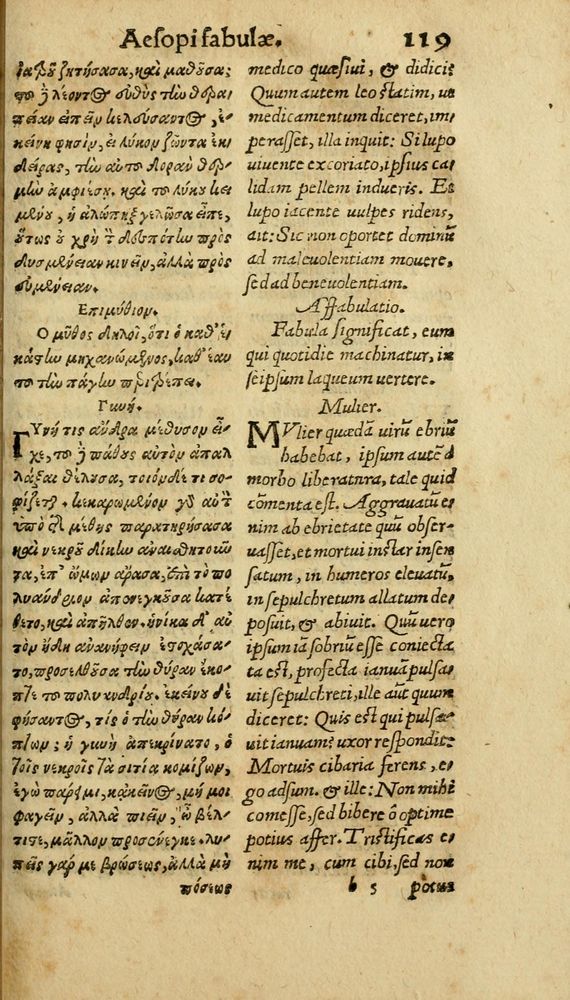 Aesopi fabulæ. 119
ἰατρῷ ζητήσασα, καὶ μαθοῦσα;
τοῦ δὲ λέοντος εὐθὺς τὴν θερα-
πείαν εἰπεῖν κελεύσαντος, ἐ-
κείνη φησὶν, εἰ λύκον ζῶντα ἐκ-
δείρας, τὴν αὐτοῦ δορὰν θερ-
μὴν ἀμφιέσῃ. καὶ τοῦ λύκου κει
μένου, ἡ ἀλώπηξ γελῶσα εἶπε,
οὕτως οὐ χρὴ τὸν δεσπότην πρὸς
δυσμένειαν κινεῖν, ἀλλὰ πρὸς
εὐμένειαν.
Ἐπιμύθιον.
Ὁ μῦθος δηλοῖ, ὅτι ὁ καθ' ἑ-
κάστην μηχανώμενος, καθ' ἑαυ
τοῦ τὴν πάγην περιτρέπει.
Γυνή.
ΓΥνή τις ἄνδρα μέθυσον εἶ-
χε, τοῦ δὲ πάθους αὐτὸν ἀπαλ
λάξαι θέλουσα, τοιόνδε τι σο-
φίζεται. κεκαρωμένον γὰρ αὐτὸν
ὑπὸ τῆς μέθης παρατηρήσασα
καὶ νεκροῦ δίκην ἀναισθητοῦν
τα, ἐπ' ὤμων ἄρασα, ἐπὶ τὸ πο
λυάνδριον ἀπενεγκοῦσα κατέ
θετο, καὶ ἀπῆλθεν. ἡνίκα δ' αὐ
τὸν ἤδη ἀνανήφειν ἐστοχάσα-
το, προσελθοῦσα τὴν θύραν ἔκο-
πτε τοῦ πολυανδρίου. ἐκείνου δὲ
φήσαντος, τίς ὁ τὴν θύραν κό-
πτων; ἡ γυνὴ ἀπεκρίνατο, ὁ
τοῖς νεκροῖς τὰ σιτία κομίζων,
ἐγὼ πάρειμι, κἀκεῖνος, μή μοι
φαγεῖν, ἀλλὰ πιεῖν, ὦ βέλ-
τιστε, μᾶλλον προσένεγκε. λυ-
πεῖς γάρ με βρώσεως, ἀλλὰ μὴ
πόσεως
medico quæsiui, & didici?
Quum autem leo statim, ut
medicamentum diceret, im
perasset, illa inquit: Si lupo
uiuente excoriato, ipsius ca
lidam pellem indueris. Et
lupo iacente uulpes ridens,
ait: Sic non oportet dominū
ad maleuolentiam mouere,
sed ad beneuolentiam.
Affabulatio.
Fabula significat, eum
qui quotidie machinatur, in
seipsum laqueum uertere.
Mulier.
MVlier quædā uirū ebriū
habebat, ipsum autē à
morbo liberatura, tale quid
cōmenta est. Aggrauatū e-
nim ab ebrietate quū obser-
uasset, et mortui instar insen
satum, in humeros eleuatū,
in sepulchretum allatum de-
posuit, & abiuit. Quū uero
ipsum iā sobriū esse coniecta
ta est, profecta ianuā pulsa-
uit sepulchreti, ille aūt quum
diceret: Quis est qui pulsa-
uit ianuam? uxor respondit:
Mortuis cibaria ferens, e-
go adsum. & ille: Non mihi
comesse, sed bibere ô optime
potius affer. Tristificas e-
nim me, cum cibi, sed non
b 5 potus